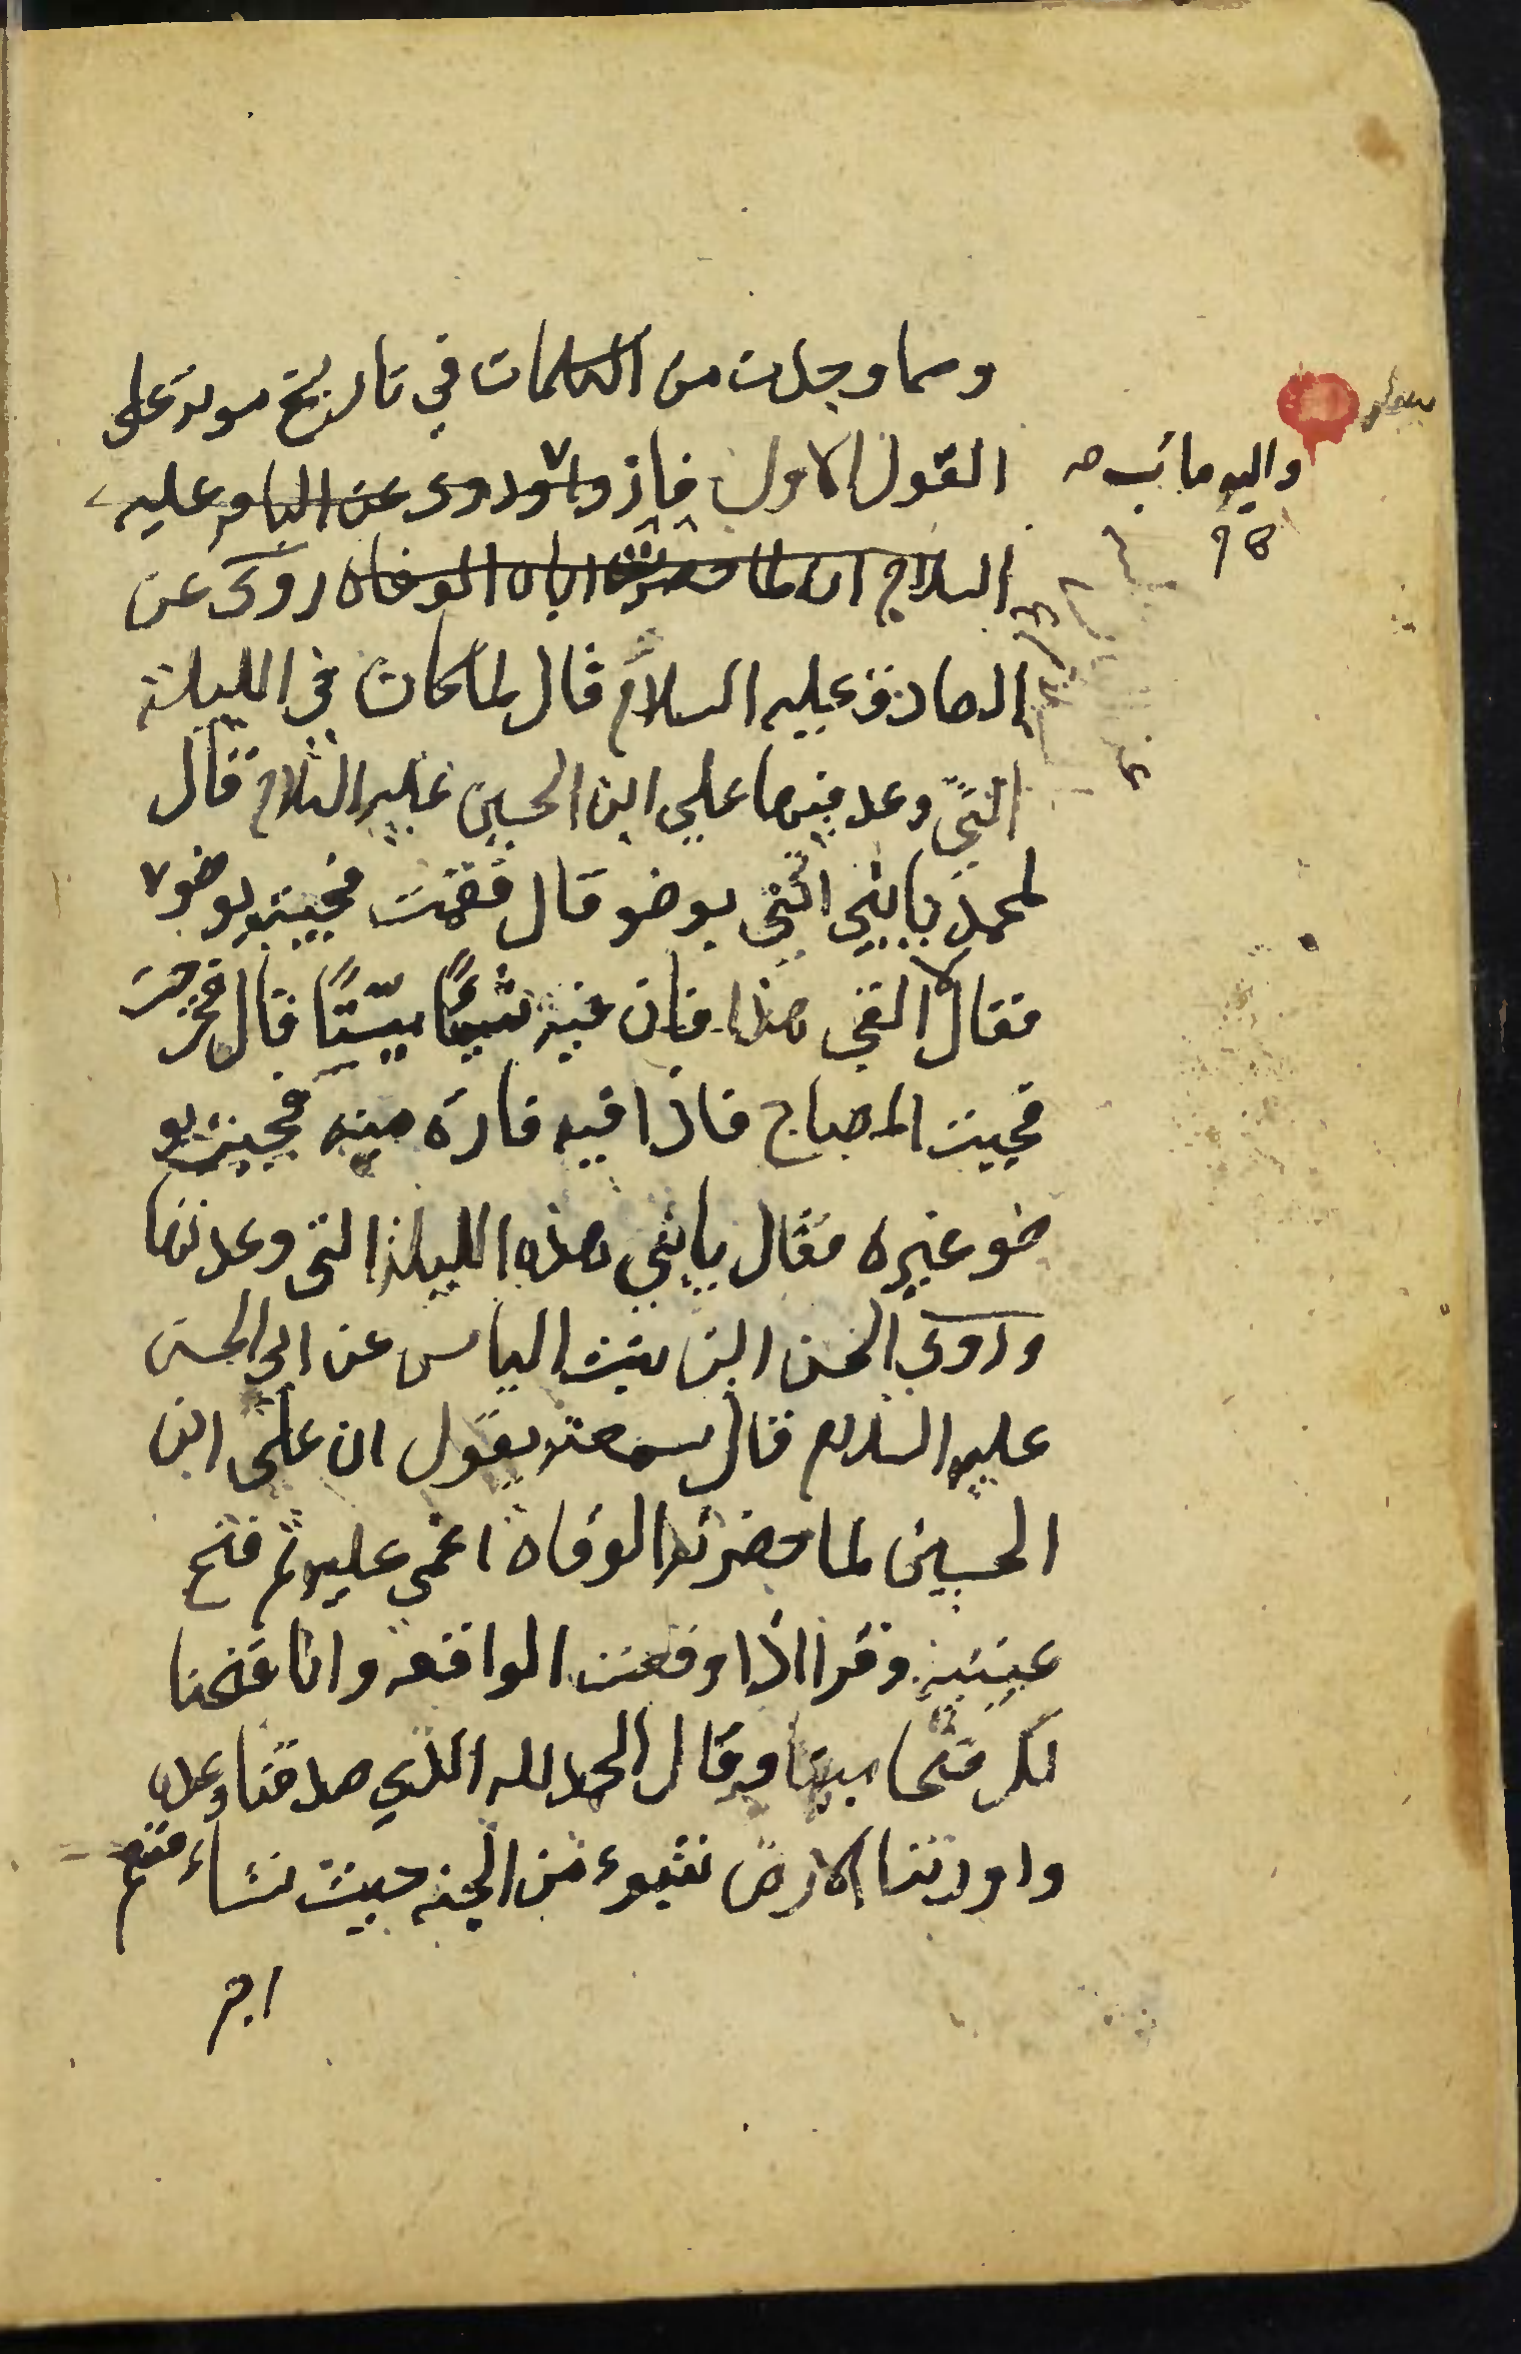 ومما وجدت من الكلمات في تاريخ موته على
القول الاول فاز واود وروى عن الباقر عليه
السلام ان لما حضرت اباه الوفاه روى عن
الصادق عليه السلام قال لما كان في الليلة
التي وعد فيها علي ابن الحسين عليه السلام قال
لمحمد يا بني ائتني بوضو قال فقمت فجيته بوضوء
فقال لا القي هذا فان فيه شيئًا ميّتًا قال فخرجت
فجيت المصباح فاذا فيه فارة ميته فجيته بو
ضو غيره فقال يا بني هذه الليلة التي وعدتها
وروى الحسن ابن بنت الياس عن ابي الحسن
عليه السلام قال سمعته يقول ان على ابن
الحسين لما حضرته الوفاة اغمى عليه ثم فتح
عينيه وقرا اذا وقعت الواقعه وانا فتحنا
لك فتحا مبينا وقال الحمد لله الذي صدقنا وعده
واورثنا الارض نتبوء من الجنه حيث نشاء فنعم
اجر
واليه مائب